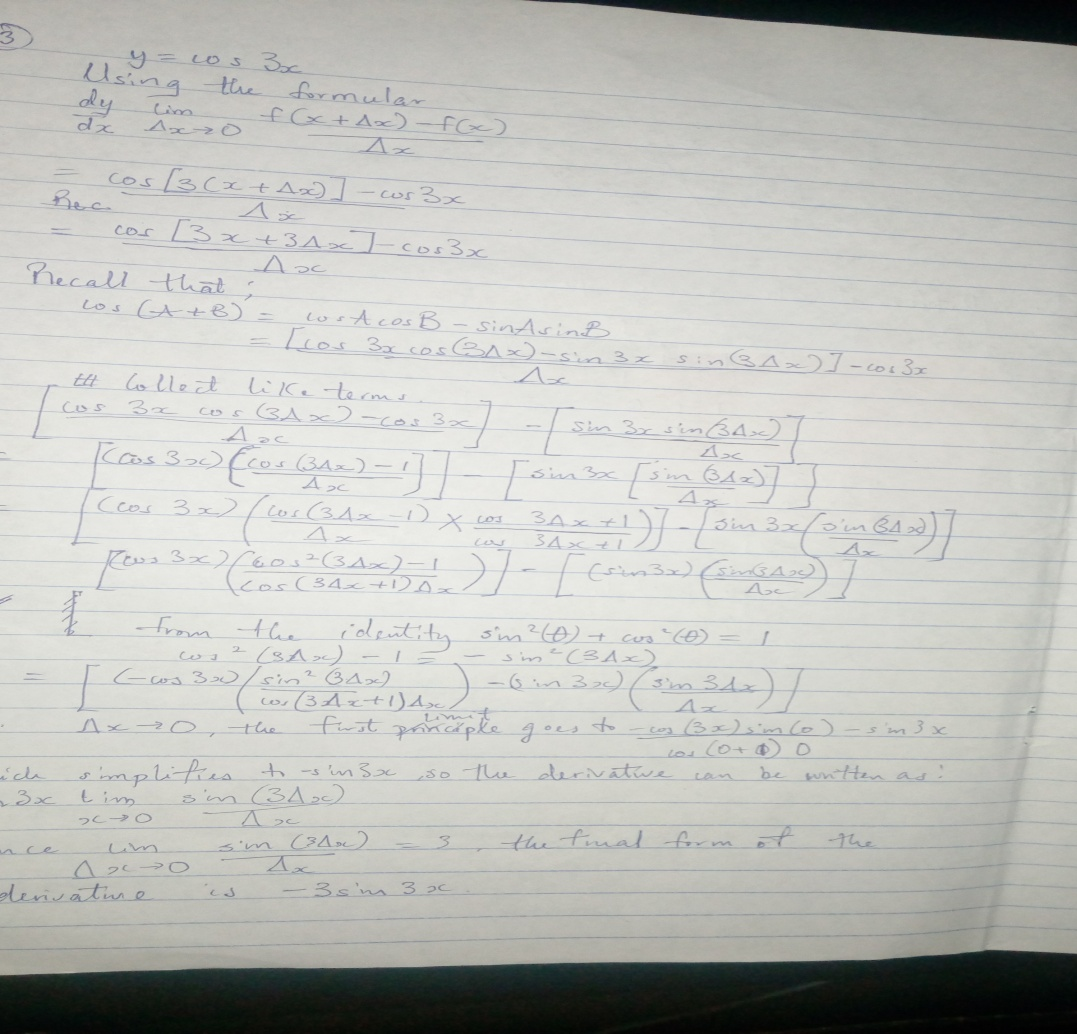 3
y = cos 3x
Using the formular
dy/dx lim Δx→0 f(x + Δx) – f(x) / Δx
= cos [3(x + Δx)] – cos 3x / Δx
Rec
= cos [3x + 3Δx] – cos3x / Δx
Recall that ;
cos (A + B) = cosAcosB – sinAsinB
= [cos 3x cos(3Δx) – sin 3x sin(3Δx)] – cos3x / Δx
Collect like terms.
[cos 3x cos (3Δx) – cos 3x / Δx] – [sin 3x sin(3Δx) / Δx]
= [(cos 3x) [cos (3Δx) – 1 / Δx]] – [sin 3x [sin (3Δx) / Δx]]
= [(cos 3x) (cos (3Δx – 1) / Δx × cos 3Δx + 1 / cos 3Δx + 1)] – [sin 3x (sin (3Δx) / Δx)]
[(cos 3x) (cos²(3Δx) – 1 / cos (3Δx + 1) Δx)] – [(sin3x) (sin(3Δx) / Δx)]
From the identity sin²(θ) + cos²(θ) = 1
cos² (3Δx) – 1 = – sin² (3Δx)
= [(–cos 3x) (sin² (3Δx) / cos (3Δx + 1) Δx) – (sin 3x) (sin 3Δx / Δx)]
Δx → 0, the first principle limit goes to –cos (3x) sin (0) – sin 3x / cos (0 + 1) 0
ich simplifies to –sin3x, so the derivative can be written as:
3x lim x→0 sin (3Δx) / Δx
nce lim Δx→0 sin (3Δx) / Δx = 3, the final form of the
derivative is – 3sin 3x